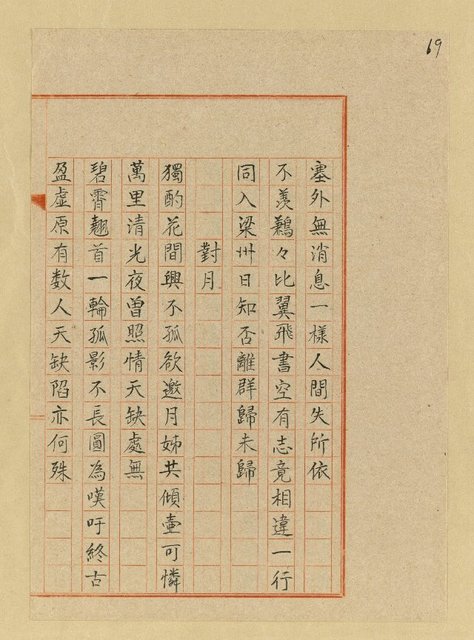 69
塞外無消息一樣人間失所依
不羨鶼々比翼飛書空有志竟相違一行
同入梁州日知否離群歸未歸
對月
獨酌花間興不孤欲邀月姊共傾壷可憐
萬里清光夜曾照情天缺處無
碧霄翹首一輪孤影不長圓為嘆吁終古
盈虛原有数人天缺陷亦何殊